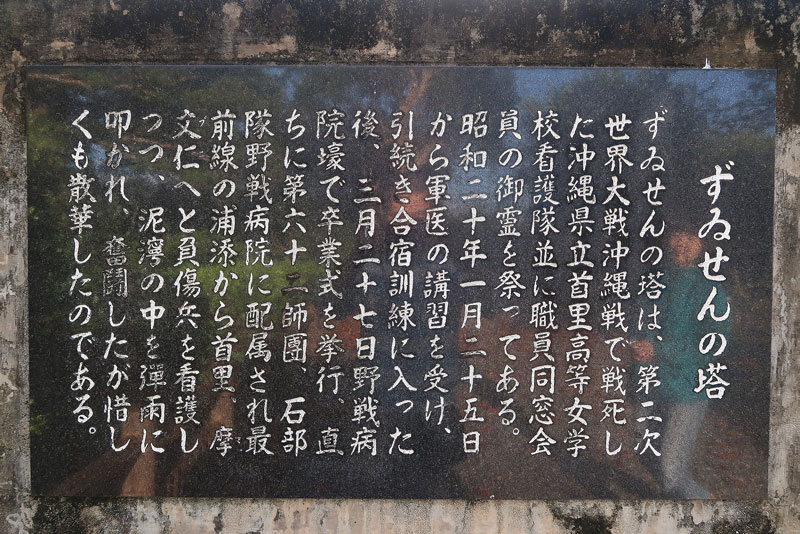 ずゐせんの塔
ずゐせんの塔は、第二次
世界大戦沖縄戦で戦死し
た沖縄県立首里高等女学
校看護隊並に職員同窓会
員の御霊を祭ってある。
昭和二十年一月二十五日
から軍医の講習を受け、
引続き合宿訓練に入った
後、三月二十七日野戦病
院壕で卒業式を挙行、直
ちに第六十二師團、石部
隊野戦病院に配属され最
前線の浦添から首里、摩
文仁へと負傷兵を看護し
つつ、泥濘の中を彈雨に
叩かれ、奮闘したが惜し
くも散華したのである。